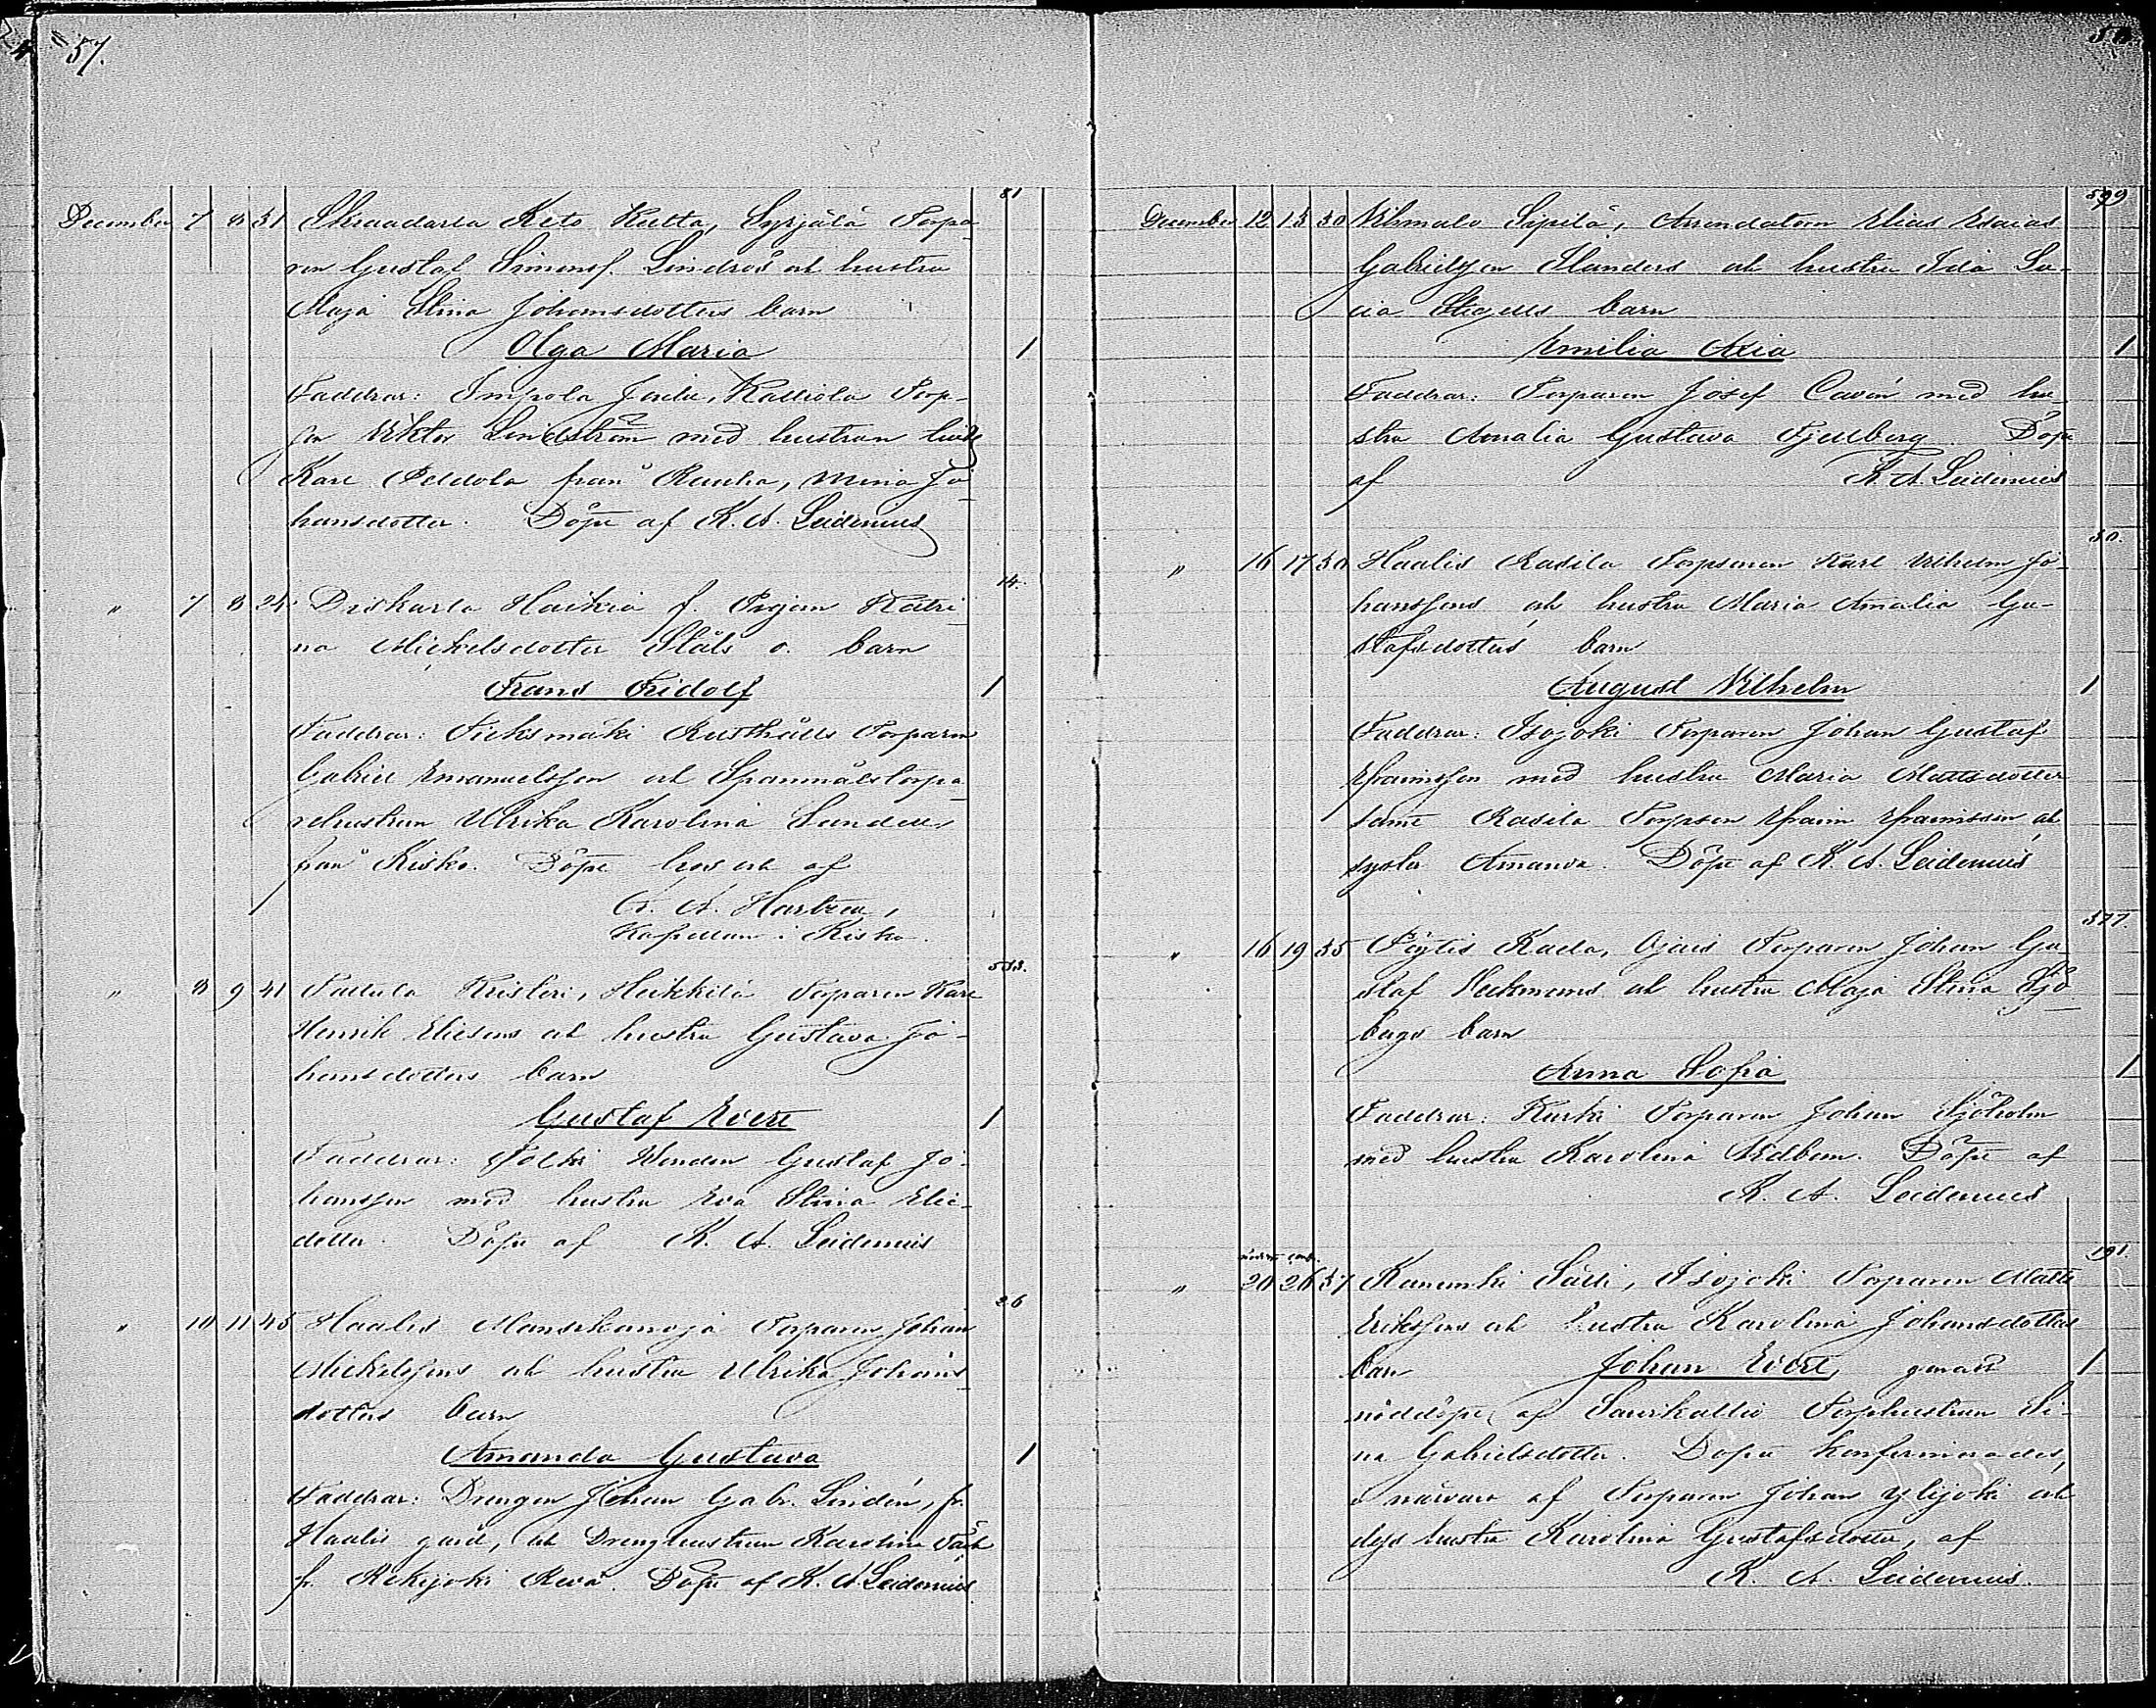 57.
81
December 7 8 31 Keto Kulta, Syrjälä Torpa-
ren Gustaf Simonss. Lindros och hustru
Maja Stina Johansdotters barn
Olga Maria 1
Faddrar: Impola Kalliola Torp-
Viktor Lindström med hustrun
Karl från Rauha, Mina Jo-
hansdotter. Döpt af K. A. Leidenius
14.
" 7 8 24 Haikia f. Pigan Katri-
na Mickelsdotter Ståls o. barn
Frans Fridolf 1
Faddrar: Rusthålls Torparen
Gabriel Emanuelsson och Spanmålstorpa-
rehustrun Ulrika Karolina
från Kisko. Döpt hos och af
Kapellan i Kisko.
" 8 9 41 Kristeri, Heikkilä Torparen Karl
Henrik Eliesens och hustru Gustava Jo-
hansdotters barn
Gustaf Evert 1
Faddrar: Gustaf Jo-
hansson med hustru Eva Stina Elie-
dotter. Döpt af K. A. Leidenius
26
" 10 11 45 Haalis Torparen Johan
Mickelssons och hustru Ulrika Johans-
dotters barn
Amanda Gustava 1
Faddrar: Drengen Johan Gabr. Lindén, fr.
Haalis gård, och Drenghustrun Karolina
fr. Rekijoki Döpt af K. A. Leidenius
599
December 12 13 30 Sipilä, Arrendatorn Elias Esaias
Gabrielsson Ilanders och hustru Ida Lo-
barn
Emilia 1
Faddrar: Torparen Josef med hu-
stru Amalia Gustava Fjellberg. Döpt
af K. A. Leidenius
50.
" 16 17 30 Haalis Rasila Torparen Karl Vilhelm Jo-
hanssons och hustru Maria Amalia Gu-
stafsdotters barn
August Vilhelm 1
Faddrar: Isojoki Torparen Johan Gustaf
Efraimsson med hustru Maria Mattsdotter
samt Rasila Torpson Efraim Efraimsson och
syster Amanda. Döpt af K. A. Leidenius
577.
" 16 19 35 Pöytis Kaela, Ojais Torparen Johan Gu-
staf Heckmans och hustru Maja Stina Sjö-
bergs barn
Anna Sofia 1
Faddrar: Kurki Torparen Johan Sjöholm
med hustru Karolina Vedbom. Döpt af
K. A. Leidenius
191.
" 20 26 37 Isojoki Torparen Matts
Erikssons och hustru Karolina Johansdotters
barn Johan Evert, genast
nöddöpt af Torphustrun
na Gabrielsdotter. Dopet konfirmerades,
i närvaro af Torparen Johan Ylijoki och
dess hustru Karolina Gustafsdotter, af
K. A. Leidenius.